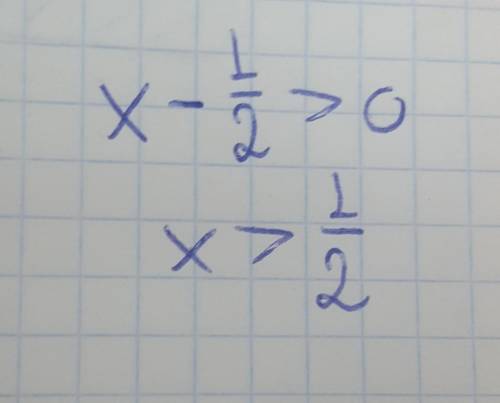 x - 1/2 > 0
x > 1/2